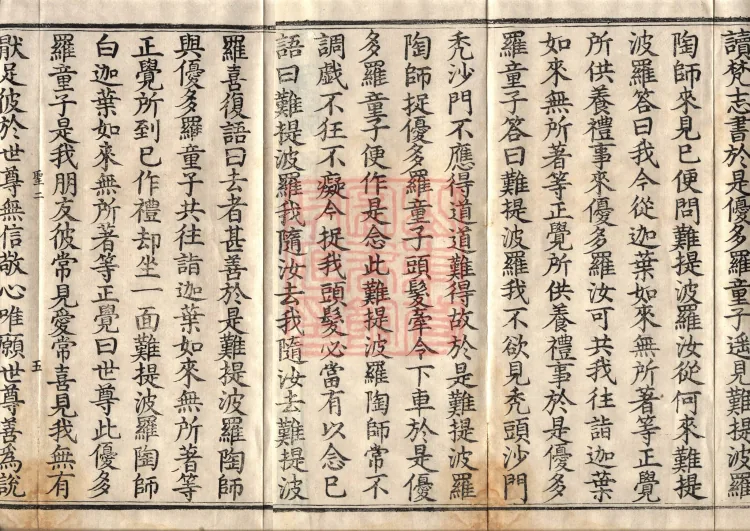 讀梵志書於是優多羅童子遥見難提波羅
陶師來見已便問難提波羅汝從何來難提
波羅答曰我今從迦葉如來無所著等正覺
所供養禮事來優多羅汝可共我往詣迦葉
如來無所著等正覺所供養禮事於是優多
羅童子答曰難提波羅我不欲見秃頭沙門
秃沙門不應得道道難得故於是難提波羅
陶師捉優多羅童子頭髮牽令下車於是優
多羅童子便作是念此難提波羅陶師常不
調戲不狂不癡今捉我頭髮必當有以念已
語曰難提波羅我隨汝去我隨汝去難提波
羅喜復語曰去者甚善於是難提波羅陶師
與優多羅童子共往詣迦葉如來無所著等
正覺所到已作禮却坐一面難提波羅陶師
白迦葉如來無所著等正覺曰世尊此優多
羅童子是我朋友彼常見愛常喜見我無有
聖二 五
猒足彼於世尊無信敬心唯願世尊善為說